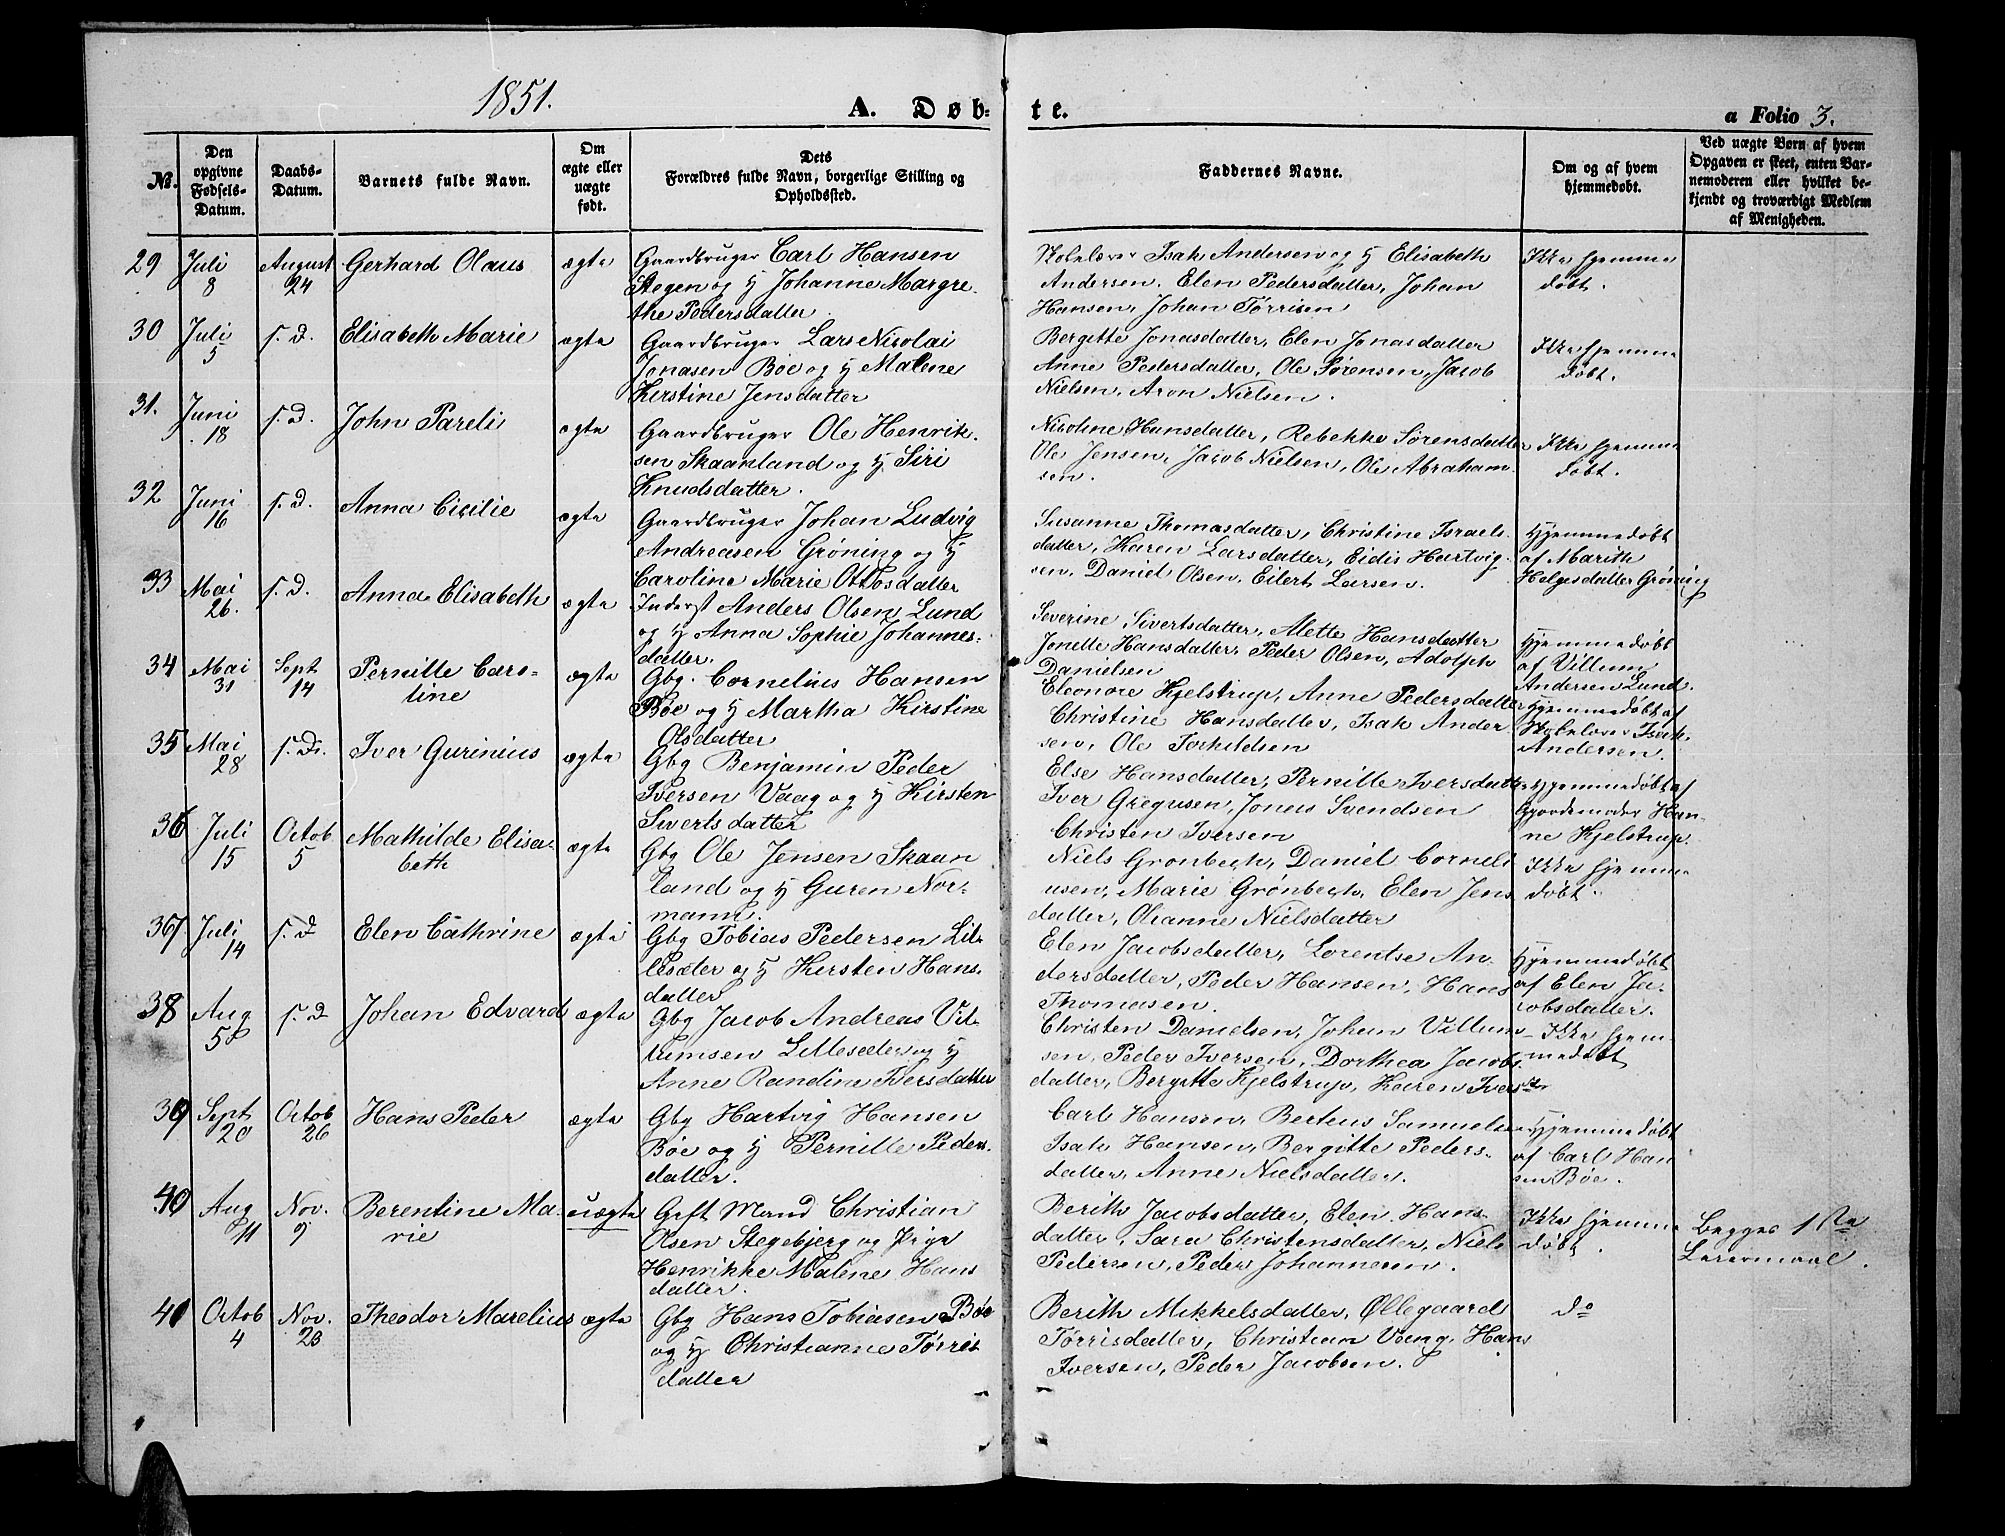 1851.
A. Døb-
te.
a Folio 3.
No.
Den opgivne Fødsels-Datum.
Daabs-Datum.
Barnets fulde Navn.
Om ægte eller uægte født.
Dets Forældres fulde Navn, borgerlige Stilling og Opholdssted.
Faddernes Navne.
Om og af hvem hjemmedøbt.
Ved uægte Børn af hvem Opgaven er skeet, enten Barnemoderen eller hvilket bekjendt og troværdigt Medlem af Menigheden.
29 Juli 8 August 24 Gerhard Olaus ægte
Gaardbruger Carl Hansen
Stegen og H Johanne Margre-
the Pedersdatter
Skolelærer Isak Andersen og H Elisabeth
Andersen. Elen Pedersdatter, Johan
Hansen, Johan Tørrisen
Ikke hjemme
døbt.
30 Juli 5 s. D. Elisabeth Marie ægte
Gaardbruger Lars Nicolai
Jonasen Bøe og H Malene
Kirstine Jensdatter
Bergitte Jonasdatter, Elen Jonasdatter
Anne Pedersdatter, Ole Sørensen, Jacob
Nielsen, Aron Nielsen.
Ikke hjemme
døbt.
31. Juni 18 s. D. John Pareli ægte
Gaardbruger Ole Henrik-
sen Skaanland og H Siri
Knudsdatter.
Nicoline Hansdatter, Rebekke Sørensdatter
Ole Jensen, Jacob Nielsen, Ole Abraham-
sen.
Ikke hjemme
døbt.
32 Juni 16 s. D. Anna Cicilie ægte
Gaardbruger Johan Ludvig
Andreasen Grøning og H
Caroline Marie Ottosdatter
Susanne Thomasdatter, Christine Israels-
datter, Karen Larsdatter, Eidis Hartvig-
sen, Daniel Olsen, Eilert Larsen.
Hjemmedøbt
af Marith
Helgesdatter Grøning
33 Mai 26. s. D. Anna Elisabeth ægte
Inderst Anders Olsen Lund
og H Anna Sophie Johannes-
datter.
Severine Sivertsdatter, Alette Hansdatter
Jonette Hansdatter, Peder Olsen, Adolph
Danielsen
Hjemmedøbt
af Villum
Andersen Lund.
34 Mai 31 Sept 14 Pernille Caro-
line ægte
Gbg. Cornelius Hansen
Bøe og H Martha Kirstine
Olsdatter
Eleonore Kjelstrup, Anne Pedersdatter
Christine Hansdatter, Isak Ander
sen, Ole Torkildsen
Hjemmedøbt af
Skolelærer Isak
Andersen.
35 Mai 28 s. D. Iver Gurinius ægte
Gbg Benjamin Peder
Iversen Vaag og H Kirsten
Siverts datter
Else Hansdatter, Pernille Iversdatter
Iver Gregusen, Jonas Svendsen
Christen Iversen
Hjemmedøbt af
Gjordemoder Han-
ne Kjelstrup.
36 Juli 15 Octob 5 Mathilde Elisa-
beth ægte
Gbg Ole Jensen Skaan
land og H Guren Nor-
mann.
Niels Grønbech, Daniel Corneli
usen, Marie Grønbech, Elen Jens
datter, Oleanne Nielsdatter
Ikke hjemme
døbt.
37 Juli 14 s. D Elen Cathrine ægte
Gbg Tobias Pedersen Lil-
lesæter og H Kirsten Hans-
datter
Elen Jacobsdatter, Lorentse An-
dersdatter, Peder Hansen, Hans
Thomasen.
Hjemmedøbt
af Elen Ja-
cobsdatter.
38 Aug 58 s. D Johan Edvard ægte
Gbg Jacob Andreas Vil-
lumsen Lillesæter og H
Anne Randine Iversdatter
Christen Danielsen, Johan Villum-
sen, Peder Iversen, Dorthea Jacobs
datter, Bergitte Kjelstrup, Karen Iversdr
Ikke hjem-
medøbt
39 Sept 20 Octob 26 Hans Peder ægte
Gbg Hartvig Hansen
Bøe og H Pernille Peders-
datter.
Carl Hansen, Berteus Samuelsen
Isak Hansen, Bergitte Peders-
datter, Anne Nielsdatter.
Hjemmedøbt
af Carl Han
sen Bøe.
40 Aug 11 Nov. 9 Berentine Ma-
rie uægte
Gift Mand Christian
Olsen Stegebjerg og Pige
Henrikke Malene Hans
datter.
Berith Jacobsdatter, Elen Hans-
datter, Sara Christensdatter, Niels
Pedersen, Peder Johannesen.
Ikke hjemme
døbt.
Begges 1ste
Leiermaal.
41 Octob 4 Nov. 23 Theodor Marelius ægte
Gbg Hans Tobiasen Bøe
og H Christianne Tørris
datter
Berith Mikkelsdatter, Øllegaard
Tørrisdatter, Christian Vaag, Hans
Iversen, Peder Jacobsen.
do